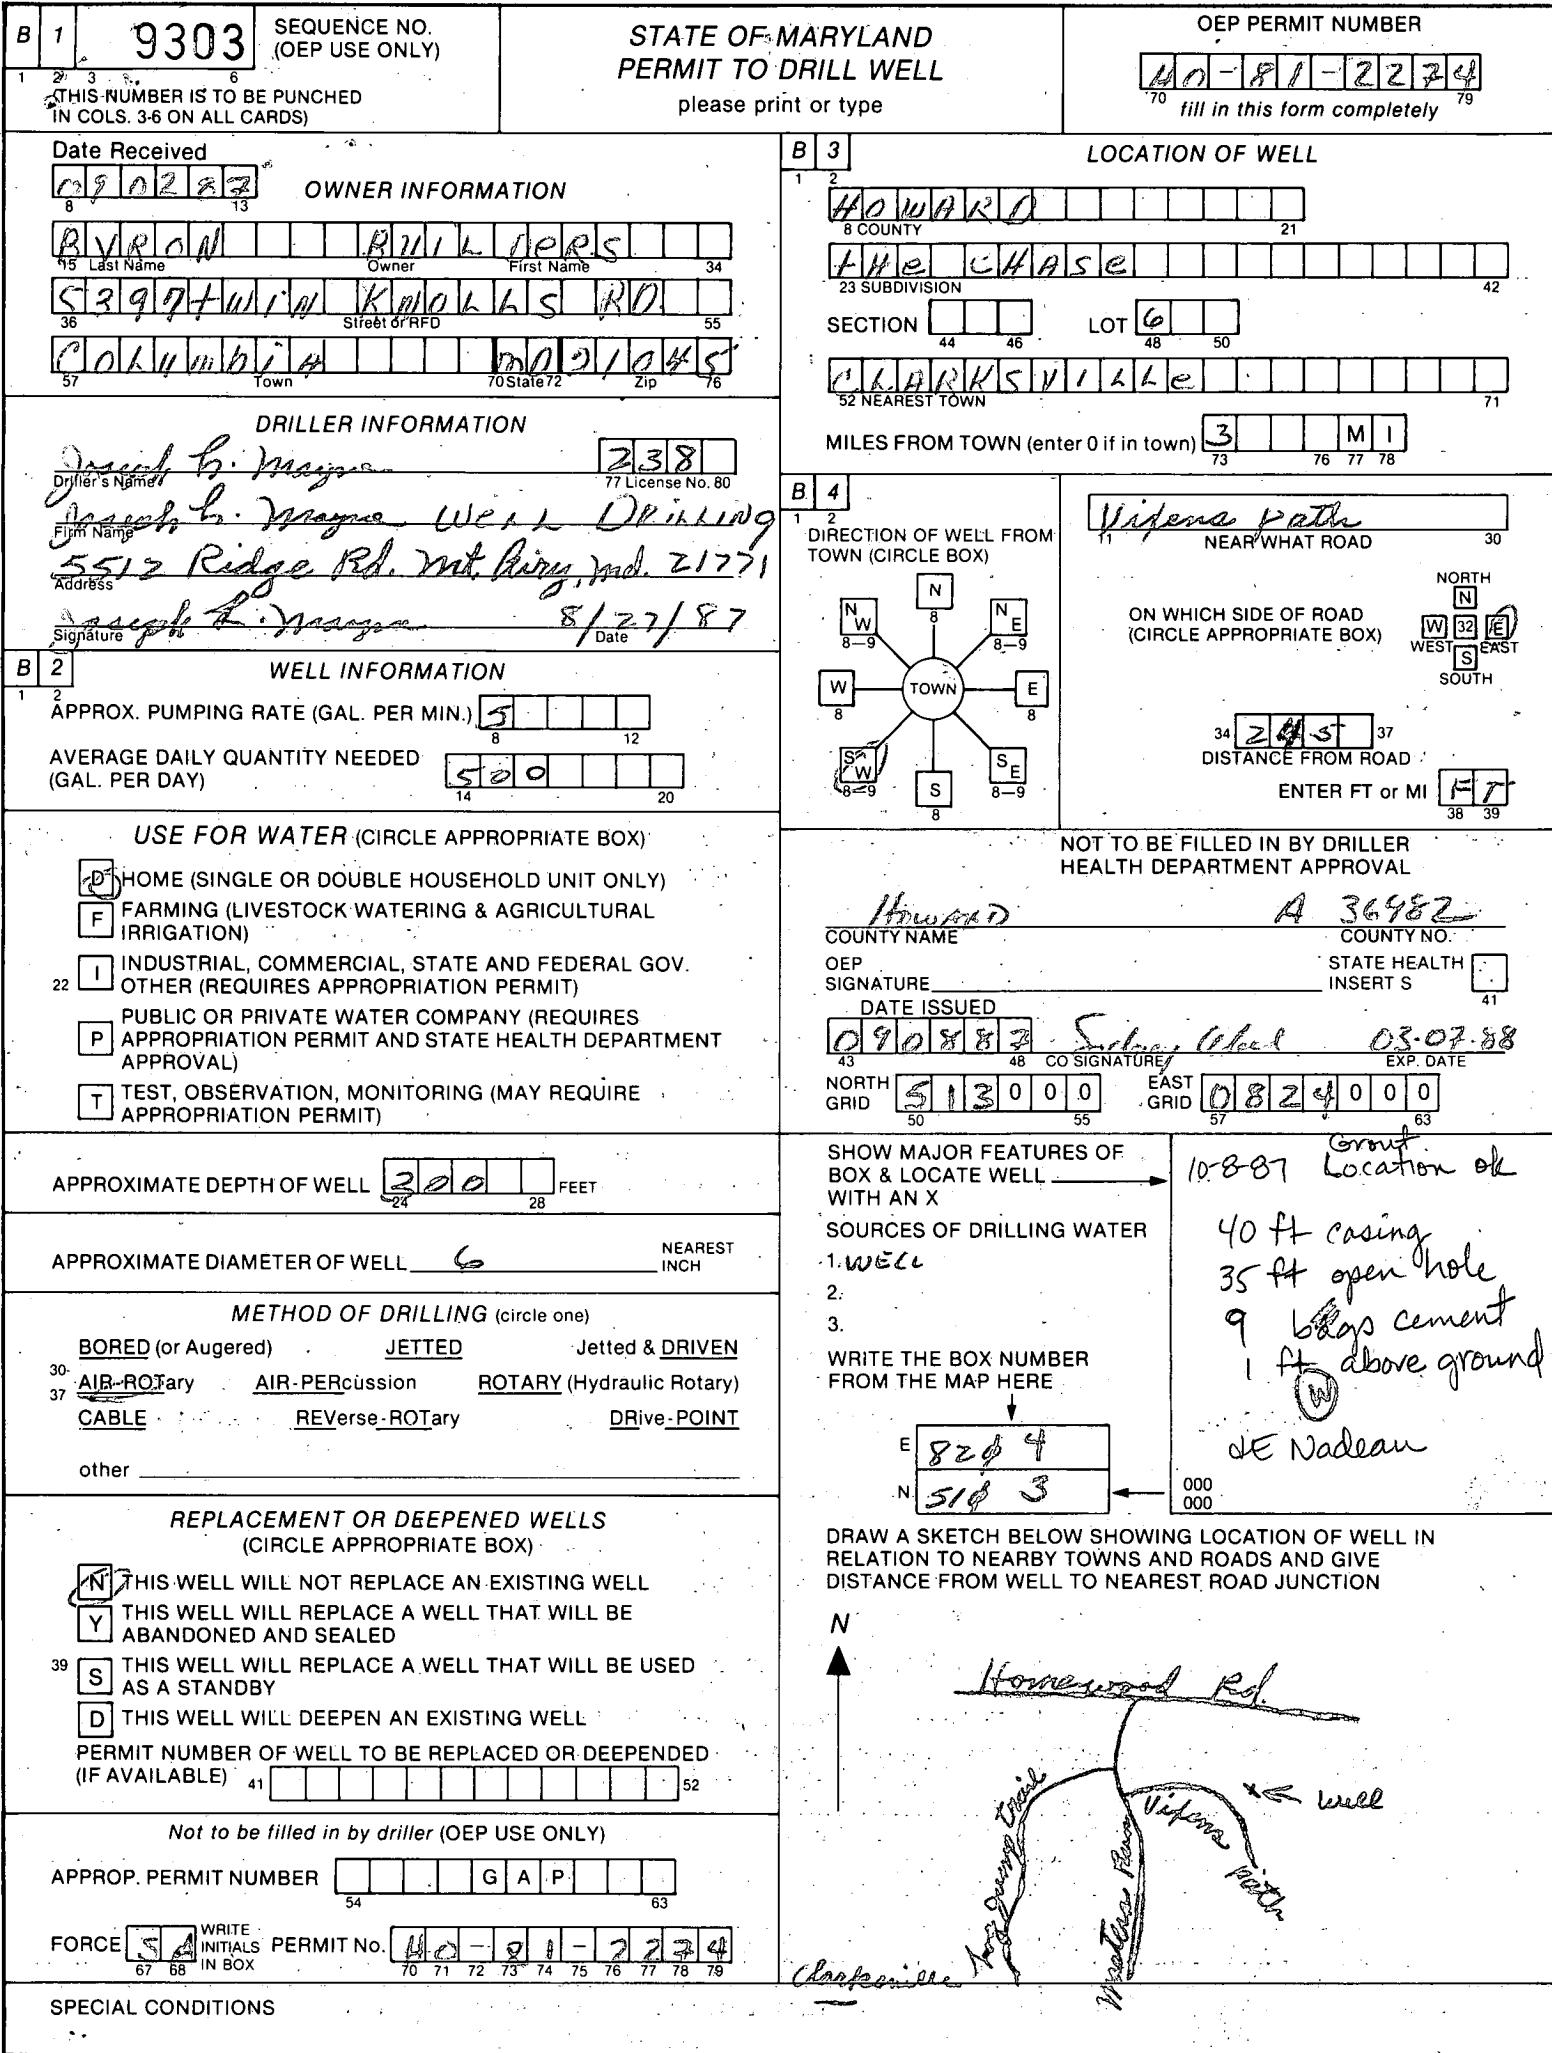 B 1 9303 SEQUENCE NO.
(OEP USE ONLY)
1 2 3 6
(THIS NUMBER IS TO BE PUNCHED
IN COLS. 3-6 ON ALL CARDS)
STATE OF MARYLAND
PERMIT TO DRILL WELL
please print or type
OEP PERMIT NUMBER
HO-81-2274
70 79
fill in this form completely
Date Received
090287
8 13
OWNER INFORMATION
BYRON BUILDERS
15 Last Name Owner First Name 34
5397 tWIN KNOLLS RD
36 Street or RFD 55
COLUMBIA MD 21045
57 Town 70 State 72 Zip 76
DRILLER INFORMATION
Joseph L. Mayne 238
Driller's Name 77 License No. 80
Joseph L. Mayne WELL DRILLING
Firm Name
5512 Ridge Rd. Mt. Airy, Md. 21771
Address
Joseph L. Mayne 8/27/87
Signature Date
B 2 WELL INFORMATION
1 2
APPROX. PUMPING RATE (GAL. PER MIN.) 5
8 12
AVERAGE DAILY QUANTITY NEEDED
(GAL. PER DAY) 500
14 20
USE FOR WATER (CIRCLE APPROPRIATE BOX)
D HOME (SINGLE OR DOUBLE HOUSEHOLD UNIT ONLY)
F FARMING (LIVESTOCK WATERING & AGRICULTURAL
IRRIGATION)
22 I INDUSTRIAL, COMMERCIAL, STATE AND FEDERAL GOV.
OTHER (REQUIRES APPROPRIATION PERMIT)
P PUBLIC OR PRIVATE WATER COMPANY (REQUIRES
APPROPRIATION PERMIT AND STATE HEALTH DEPARTMENT
APPROVAL)
T TEST, OBSERVATION, MONITORING (MAY REQUIRE
APPROPRIATION PERMIT)
APPROXIMATE DEPTH OF WELL 200 FEET
24 28
APPROXIMATE DIAMETER OF WELL 6 NEAREST
INCH
METHOD OF DRILLING (circle one)
BORED (or Augered) JETTED Jetted & DRIVEN
30-
37
AIR-ROTary AIR-PERcussion ROTARY (Hydraulic Rotary)
CABLE REVerse-ROTary DRive-POINT
other
REPLACEMENT OR DEEPENED WELLS
(CIRCLE APPROPRIATE BOX)
N THIS WELL WILL NOT REPLACE AN EXISTING WELL
Y THIS WELL WILL REPLACE A WELL THAT WILL BE
ABANDONED AND SEALED
39 S THIS WELL WILL REPLACE A WELL THAT WILL BE USED
AS A STANDBY
D THIS WELL WILL DEEPEN AN EXISTING WELL
PERMIT NUMBER OF WELL TO BE REPLACED OR DEEPENDED
(IF AVAILABLE) 41 52
Not to be filled in by driller (OEP USE ONLY)
APPROP. PERMIT NUMBER GAP
54 63
FORCE SA WRITE
INITIALS
IN BOX
67 68
PERMIT No. HO-81-2274
70 71 72 73 74 75 76 77 78 79
SPECIAL CONDITIONS
B 3 LOCATION OF WELL
1 2
HOWARD
8 COUNTY 21
tHe CHASe
23 SUBDIVISION 42
SECTION LOT 6
44 46 48 50
CLARKSVILLe
52 NEAREST TOWN 71
MILES FROM TOWN (enter 0 if in town) 3 MI
73 76 77 78
B 4
1 2
DIRECTION OF WELL FROM
TOWN (CIRCLE BOX)
N
8
NW NE
8-9 8-9
W TOWN E
8 8
SW SE
8-9 8-9
S
8
Vixens path
11 NEAR WHAT ROAD 30
ON WHICH SIDE OF ROAD
(CIRCLE APPROPRIATE BOX)
NORTH
N
W 32 E
WEST EAST
S
SOUTH
34 245 37
DISTANCE FROM ROAD
ENTER FT or MI FT
38 39
NOT TO BE FILLED IN BY DRILLER
HEALTH DEPARTMENT APPROVAL
HOWARD A 36482
COUNTY NAME COUNTY NO.
OEP
SIGNATURE
STATE HEALTH
INSERT S
41
DATE ISSUED
090887 03-07-88
43 48 CO SIGNATURE EXP. DATE
NORTH
GRID 513000
50 55
EAST
GRID 0824000
57 63
SHOW MAJOR FEATURES OF
BOX & LOCATE WELL
WITH AN X
SOURCES OF DRILLING WATER
1. WELL
2.
3.
WRITE THE BOX NUMBER
FROM THE MAP HERE
E 820 4
N 510 3
Grout
10-8-87 Location ok
40 ft casing
35 ft open hole
9 bags cement
1 ft above ground
W
JE Nadeau
000
000
DRAW A SKETCH BELOW SHOWING LOCATION OF WELL IN
RELATION TO NEARBY TOWNS AND ROADS AND GIVE
DISTANCE FROM WELL TO NEAREST ROAD JUNCTION
N
Homewood Rd.
well
Vixens path
trail
Masters Run
Clarksville